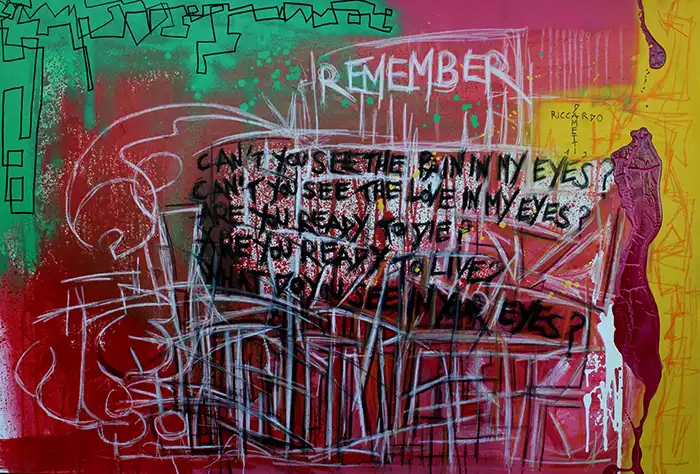 REMEMBER
RICCARDO
CAN'T YOU SEE THE PAIN IN NY EYES ?
CAN'T YOU SEE THE LOVE IN MY EYES ?
ARE YOU READY TO DIE ?
ARE YOU READY TO LIVE ?
WHAT DO YOU SEE IN EYES ?